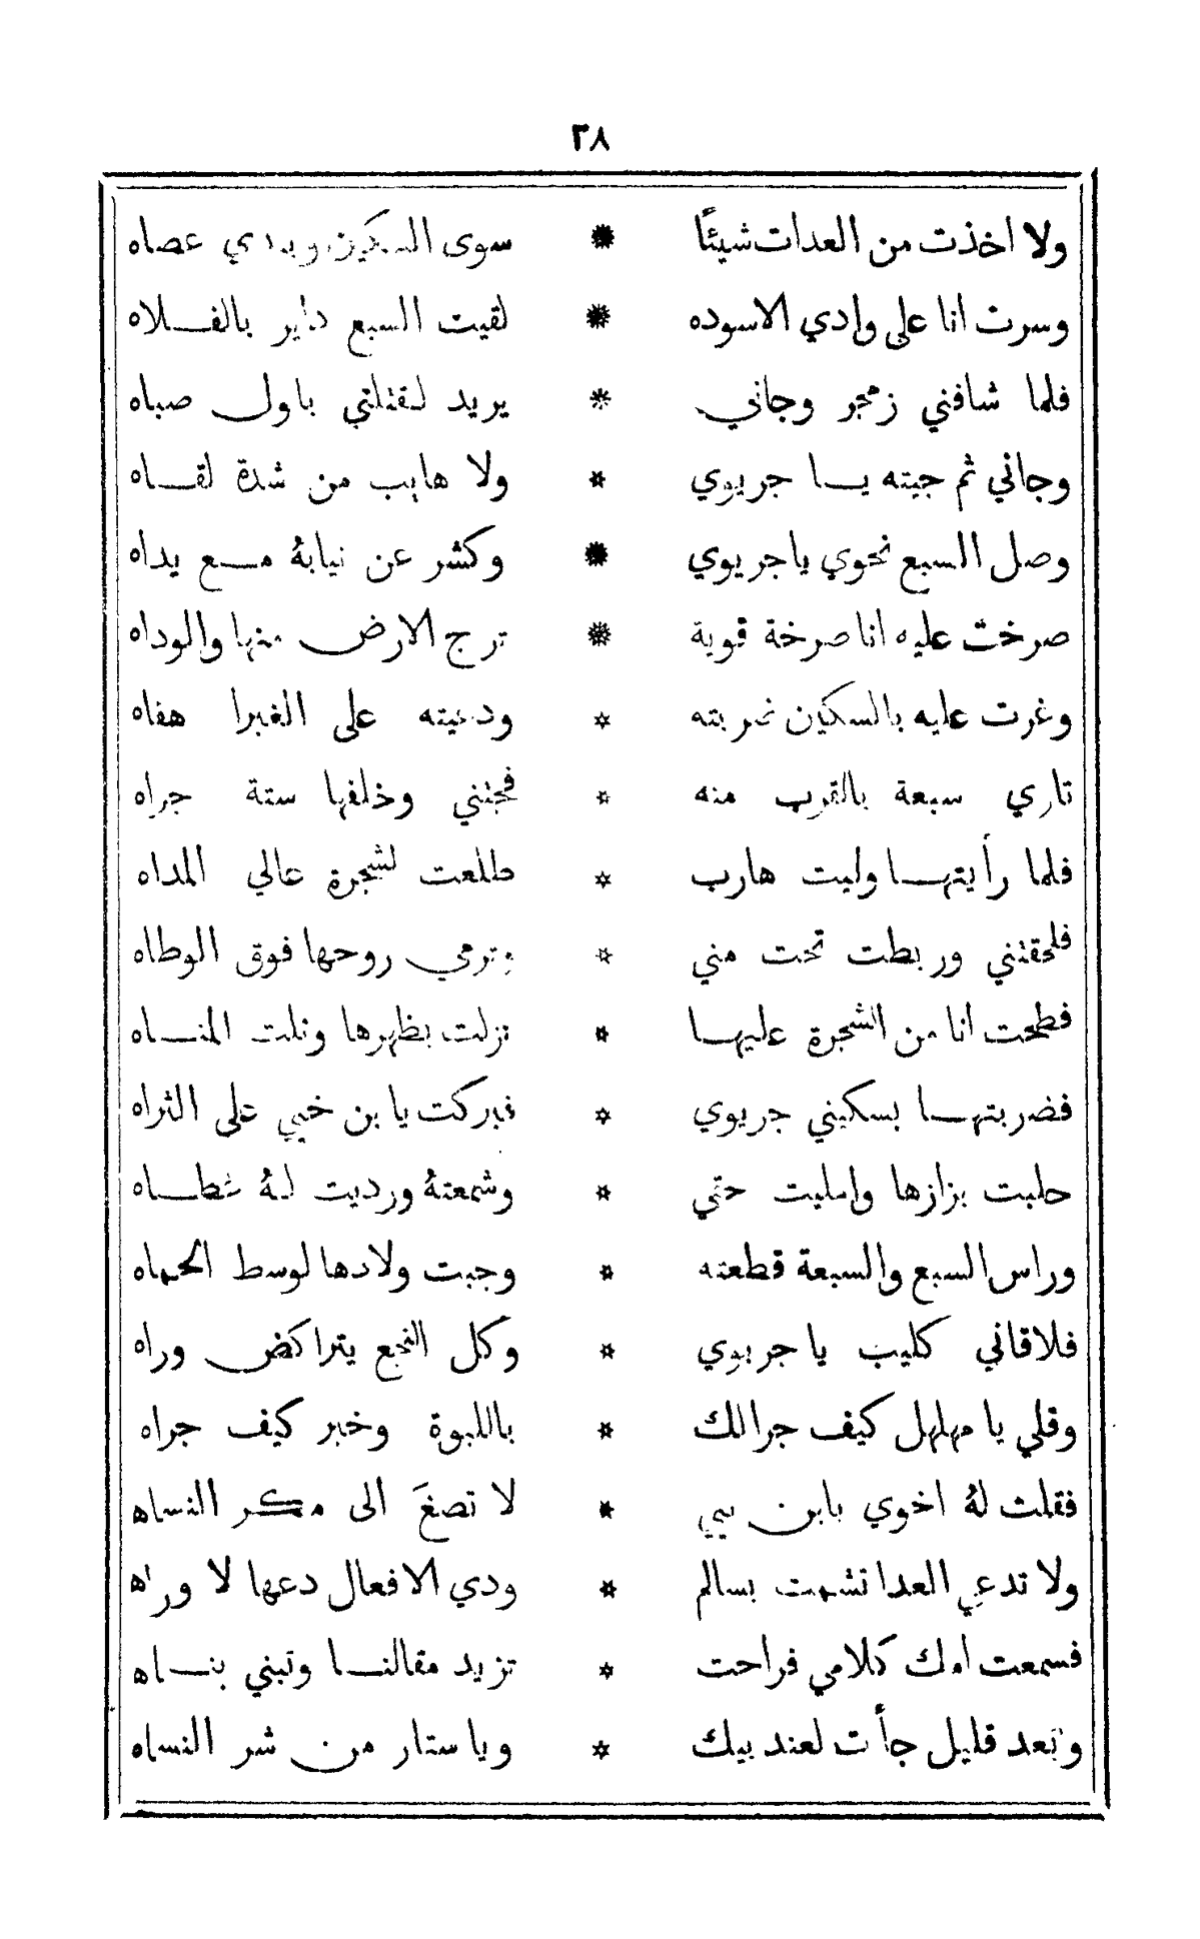 ٣٨
ولا اخذت من العدات شيئًا * سوى السكين وبيدي عصاه
وسرت انا على وادي الاسوده * لقيت السبع داير بالفـلاه
فلما شافني زمجر وجاني * يريد لقتلتي باول صباه
وجاني ثم جيته يـا جريوي * ولا هايب من شدة لقـاه
وصل السبع نحوي ياجريوي * وكشر عن نيابهُ مـع يداه
صرخت عليه انا صرخة قوية * ترج الارض منها والوداه
وغرت عليه بالسكين ضربته * ودعيته على الغبرا هفاه
تاري سبعة بالقرب منه * فجتني وخلفها ستة جراه
فلما رأيتهـا وليت هارب * طلعت لشجرة عالي المداه
فلحقتني وربطت تحت مني * وترمي روحها فوق الوطاه
فطمحت انا من الشجرة عليهـا * نزلت بظهرها ونلت المنـاه
فضربتهـا بسكيني جريوي * فبركت يا بن خيي على الثراه
حلبت بزازها وامليت حقي * وشمعتهُ ورديت لهُ غطـاه
وراس السبع والسبعة قطعته * وجبت ولادها لوسط الحماه
فلاقاني كليب يا جريوي * وكل النجع يتراكض وراه
وقلي يا مهلهل كيف جرالك * باللبوة وخبر كيف جراه
فقلت لهُ اخوي يابن بيي * لا تصغَ الى مكر النساه
ولا تدعي العدا تشمت بسالم * ودي الافعال دعها لا وراه
فسمعت امك كلامي فراحت * تزيد مقالنـا وتبني بنـاه
وبعد قليل جأت لعند بيك * ويا ستار من شر النساه